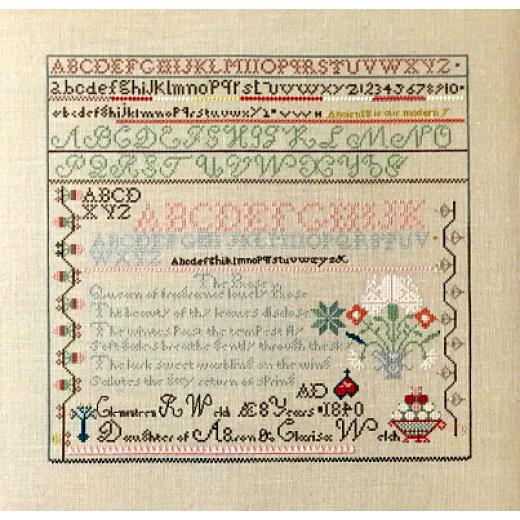 ABCDEFGHIJKLMNOPQRSTUVWXYZ
abcdefghijklmnopqrstuvwxyz12345678910
abcdefghijklmnopqrstuvwxyz
ABCDEFGHIJKLMNO
PQRSTUVWXYZ
ABCD
XYZ
ABCDEFGHIJK
ABCDEFGHIJKLMNOPQRSTUV
WXYZ abcdefghijklmnopqrstuvwxyz&
The Rose
Queen of fragrance lovely Rose
The beauty of thy leaves disclose
The winters past the tempest fly
Soft gales breathe gently through the sky
The lark sweet warbling on the wing
Salutes the gay return of spring
AD
R Welch Æ 8 Years 1840
Daughter of & Clarisa Welch